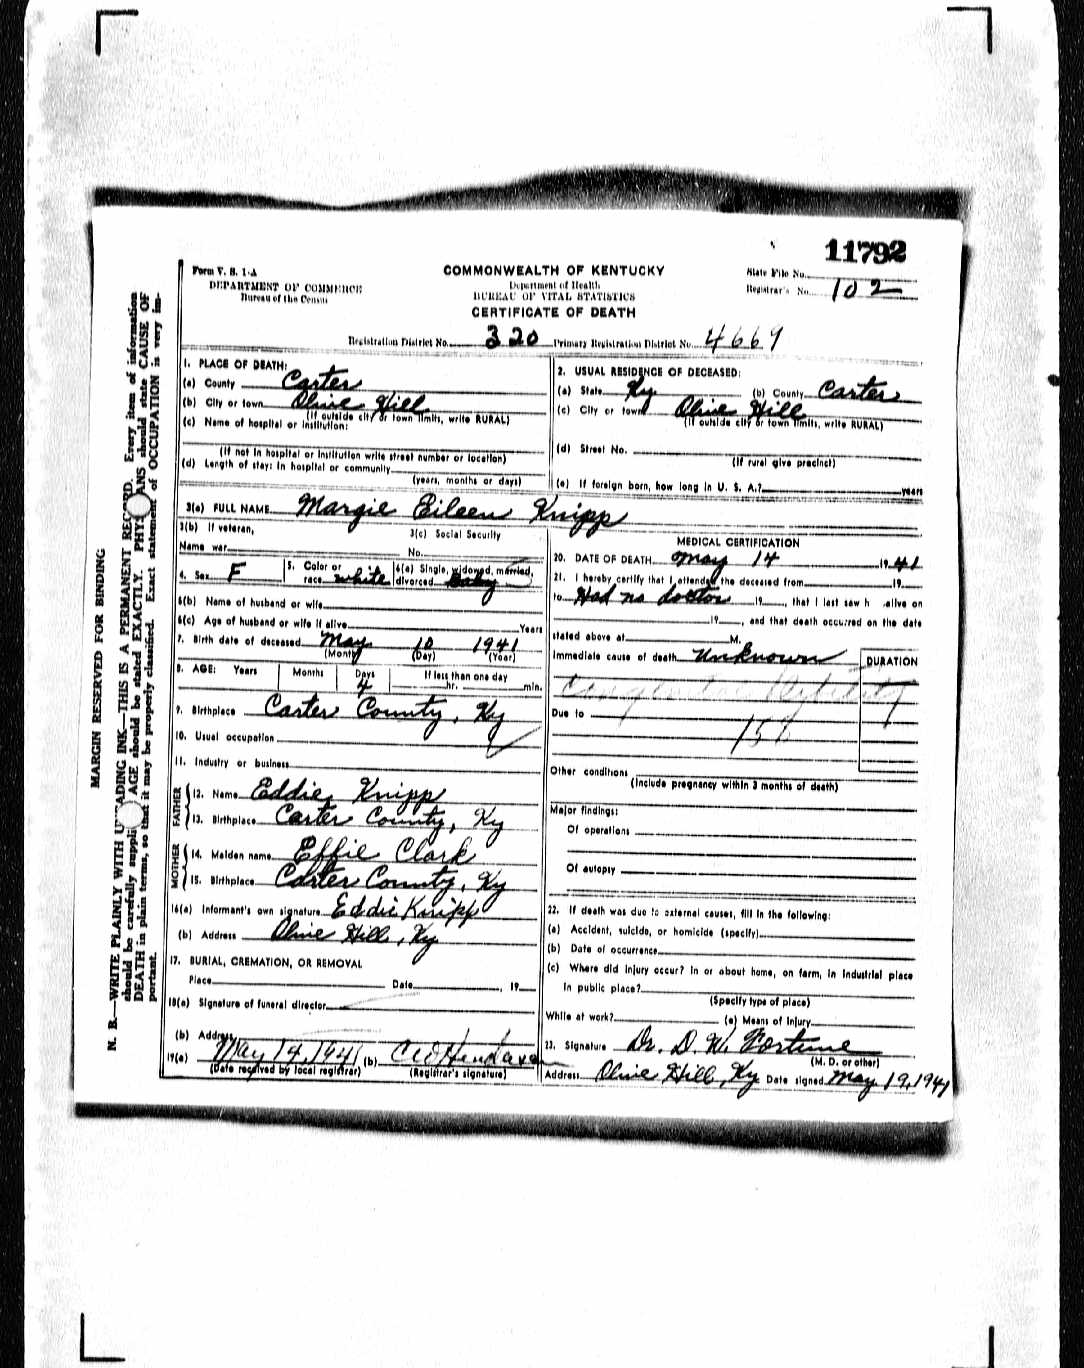 11792
Form V. S. 1-A
DEPARTMENT OF COMMERCE
Bureau of the Census
COMMONWEALTH OF KENTUCKY
Department of Health
BUREAU OF VITAL STATISTICS
CERTIFICATE OF DEATH
State File No.
Registrar's No. 102
Registration District No. 320 Primary Registration District No. 4669
MARGIN RESERVED FOR BINDING
N. B.—WRITE PLAINLY WITH ADING INK—THIS IS A PERMANENT RECORD. Every item of information
should be carefully suppli AGE should be stated EXACTLY. PHYS ANS should state CAUSE OF
DEATH in plain terms, so that it may be properly classified. Exact statement of OCCUPATION is very im-
portant.
1. PLACE OF DEATH:
(a) County Carter
(b) City or town Olive Hill
(If outside city or town limits, write RURAL)
(c) Name of hospital or institution:
(If not in hospital or institution write street number or location)
(d) Length of stay: In hospital or community
(years, months or days)
2. USUAL RESIDENCE OF DECEASED:
(a) State Ky (b) County Carter
(c) City or town Olive Hill
(If outside city or town limits, write RURAL)
(d) Street No.
(If rural give precinct)
(e) If foreign born, how long in U. S. A.? years
3(a) FULL NAME Margie Eileen Knipp
3(b) If veteran,
Name war
3(c) Social Security
No.
4. Sex F
5. Color or
race white
6(a) Single, widowed, married,
divorced Baby
6(b) Name of husband or wife
6(c) Age of husband or wife if alive Years
7. Birth date of deceased May 10 1941
(Month) (Day) (Year)
8. AGE: Years Months Days If less than one day
4 hr. min.
9. Birthplace Carter County, Ky
10. Usual occupation
11. Industry or business
FATHER
12. Name Eddie Knipp
13. Birthplace Carter County, Ky
MOTHER
14. Maiden name Effie Clark
15. Birthplace Carter County, Ky
16(a) Informant's own signature Eddie Knipp
(b) Address Olive Hill, Ky
17. BURIAL, CREMATION, OR REMOVAL
Place Date , 19
18(a) Signature of funeral director
(b) Address
19(a) May 14, 1941 (b)
(Date received by local registrar) (Registrar's signature)
MEDICAL CERTIFICATION
20. DATE OF DEATH May 14 1941
21. I hereby certify that I attended the deceased from 19
to Had no doctor 19 , that I last saw h alive on
19 , and that death occurred on the date
stated above at M.
Immediate cause of death Unknown
DURATION
Congenital Debility
Due to
158
Other conditions
(Include pregnancy within 3 months of death)
Major findings:
Of operations
Of autopsy
22. If death was due to external causes, fill in the following:
(a) Accident, suicide, or homicide (specify)
(b) Date of occurrence
(c) Where did injury occur? In or about home, on farm, in industrial place
in public place?
(Specify type of place)
While at work? (e) Means of injury
23. Signature Dr. D. W. Fortune
(M. D. or other)
Address Olive Hill, Ky Date signed May 19, 1941